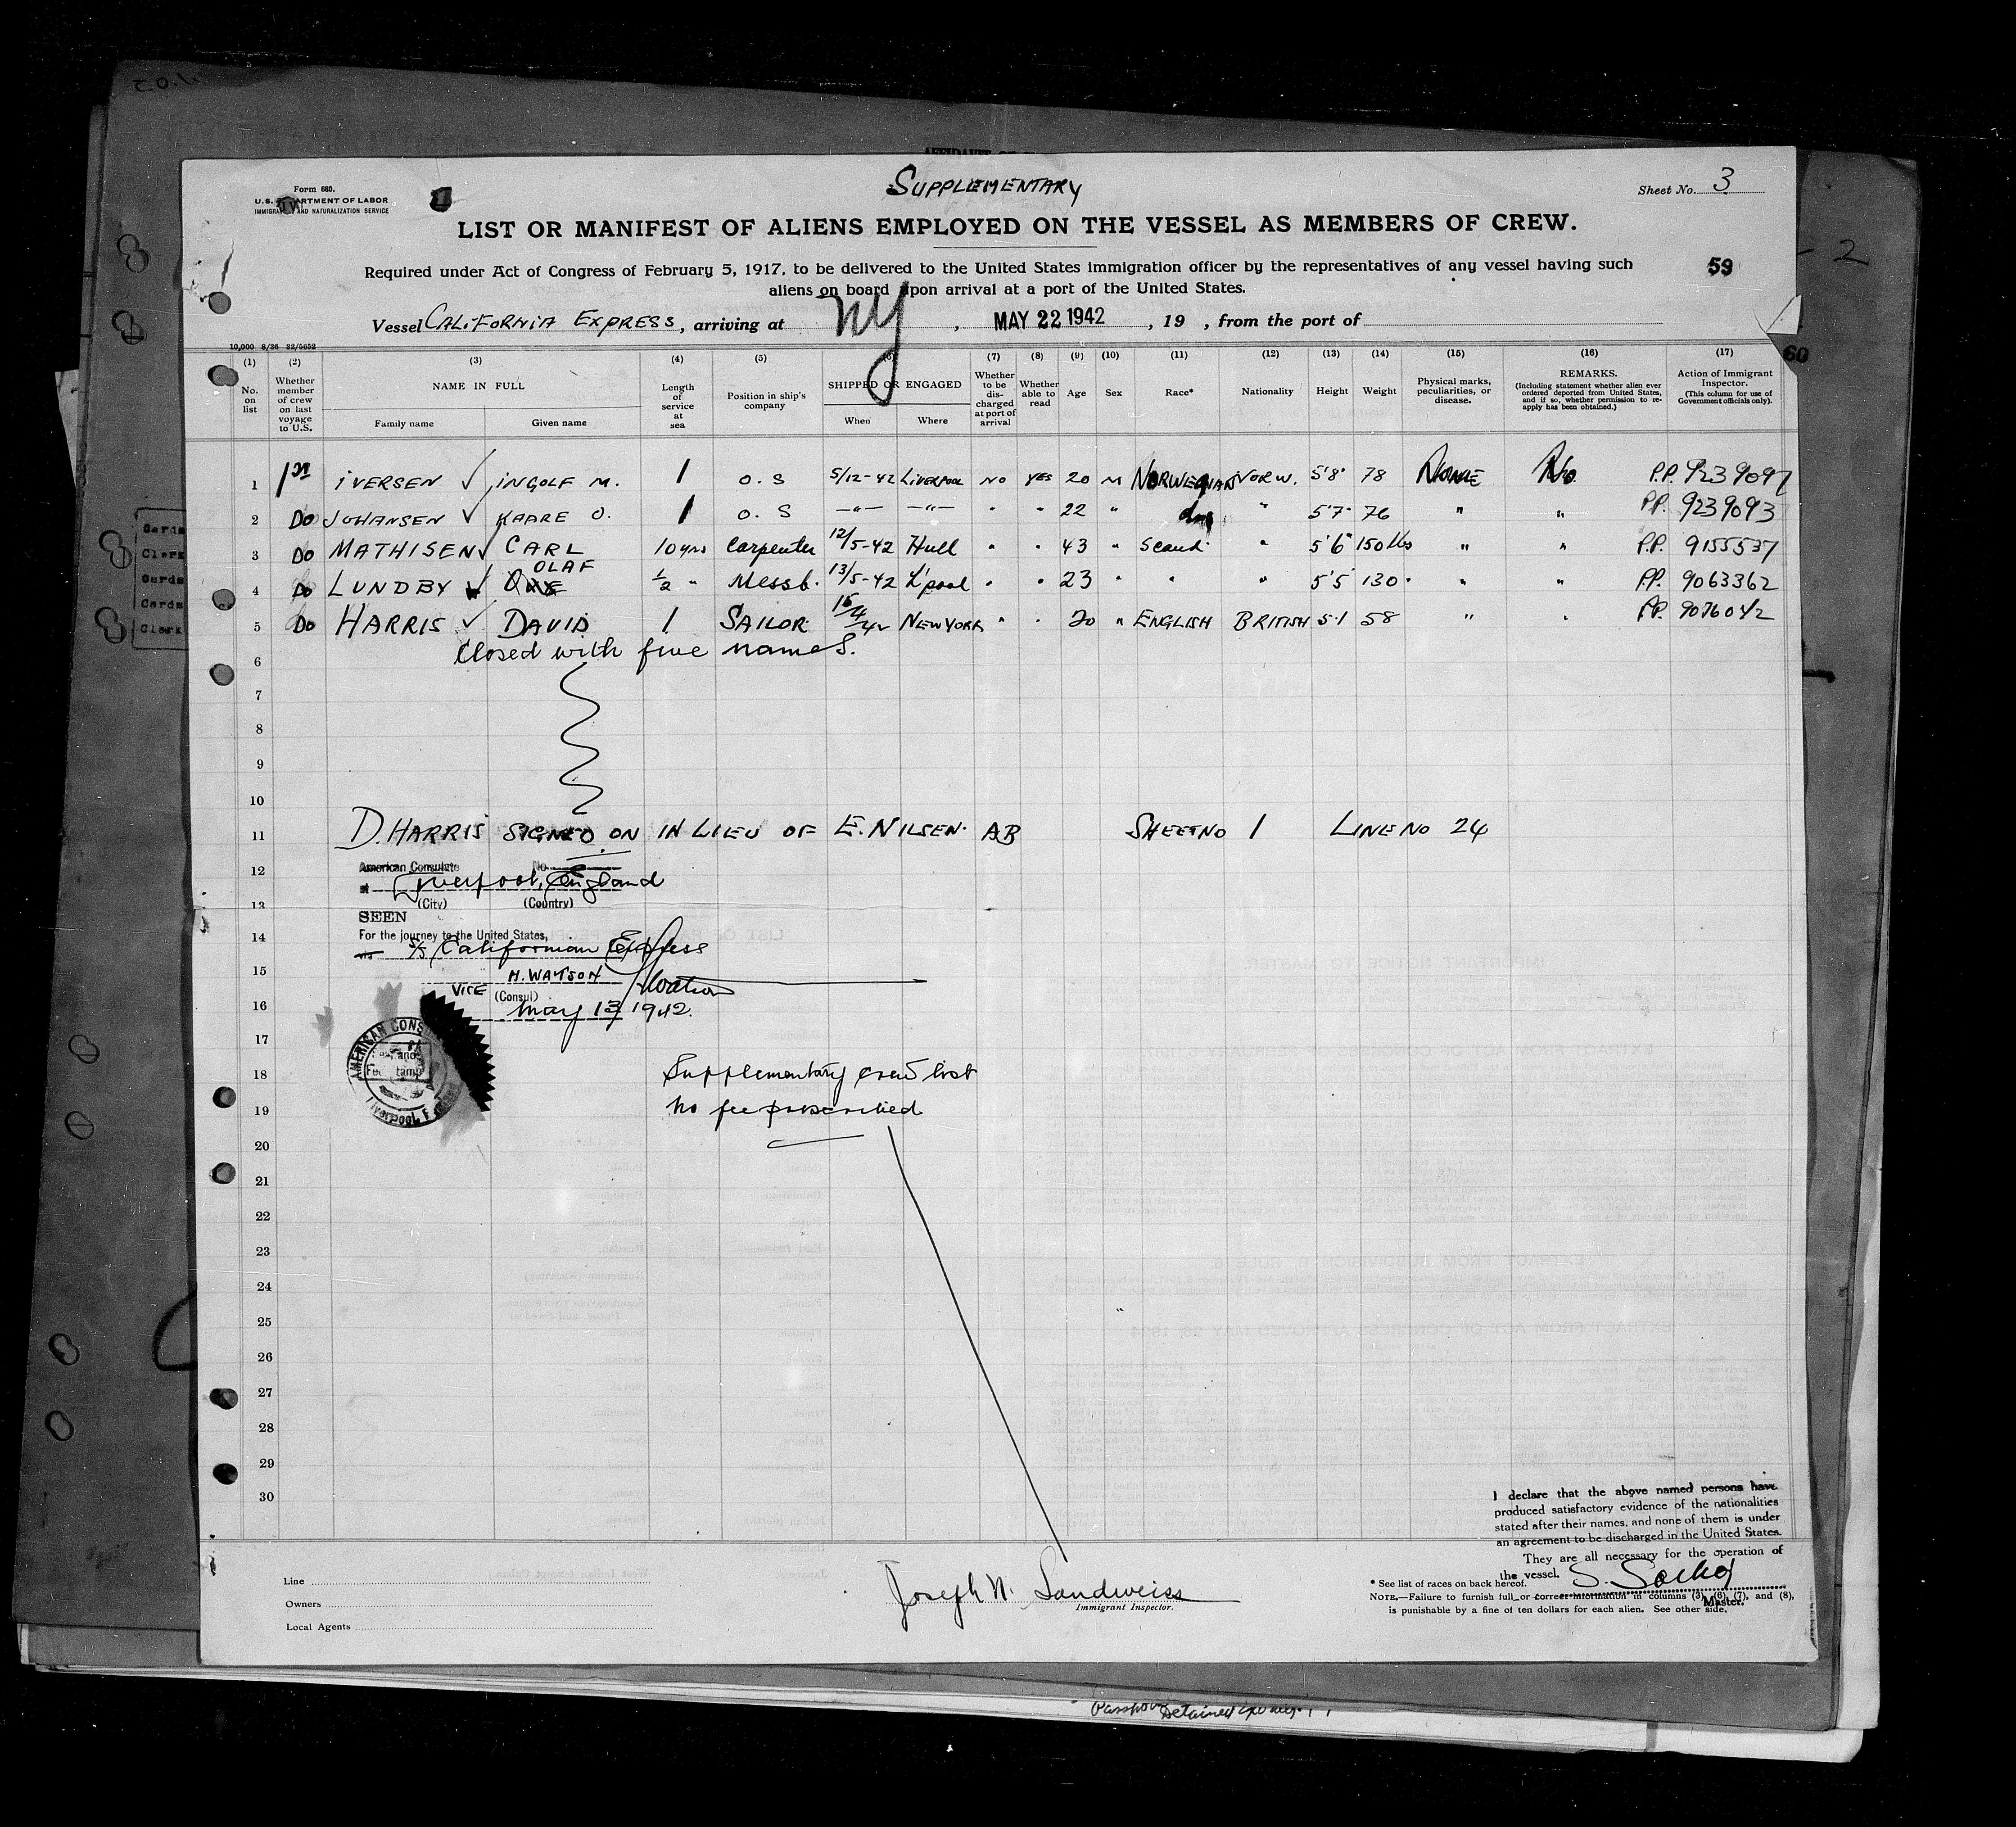 SUPPLEMENTARY
Form 680.
U.S. DEPARTMENT OF LABOR
IMMIGRATION AND NATURALIZATION SERVICE
Sheet No. 3
LIST OR MANIFEST OF ALIENS EMPLOYED ON THE VESSEL AS MEMBERS OF CREW.
Required under Act of Congress of February 5, 1917, to be delivered to the United States immigration officer by the representatives of any vessel having such
aliens on board upon arrival at a port of the United States.
59
Vessel CALIFORNIA EXPRESS, arriving at NY, MAY 22 1942, 19 , from the port of
60
10,000 8/36 22/5652
(1) (2) (3) (4) (5) (6) (7) (8) (9) (10) (11) (12) (13) (14) (15) (16) (17)
No. on list
Whether member of crew on last voyage to U.S.
NAME IN FULL
Family name
Given name
Length of service at sea
Position in ship's company
SHIPPED OR ENGAGED
When
Where
Whether to be discharged at port of arrival
Whether able to read
Age
Sex
Race*
Nationality
Height
Weight
Physical marks, peculiarities, or disease.
REMARKS.
(Including statement whether alien ever ordered deported from United States, and if so, whether permission to reapply has been obtained.)
Action of Immigrant Inspector.
(This column for use of Government officials only).
1 IVERSEN INGOLF M. 1 O. S 5/12-42 LIVERPOOL NO YES 20 M NORWEGIAN NORW. 5'8" 78 NONE No P.P. 9239097
2 Do JOHANSEN KAARE O. 1 O. S —"— —"— " " 22 " do " 5'7" 76 " " P.P. 9239093
3 Do MATHISEN CARL 10 yrs Carpenter 12/5-42 Hull " " 43 " Scand. " 5'6" 150 lbs " " P.P. 9155537
OLAF
4 Do LUNDBY 1/2 " Messb. 13/5-42 L'pool " " 23 " " " 5'5 130 " " " P.P. 9063362
5 Do HARRIS DAVID 1 SAILOR NEW YORK " " 20 " ENGLISH BRITISH 5-1 58 " " P.P. 9076042
6 Closed with five names.
7
8
9
10
11 D. HARRIS SIGNED ON IN LIEU OF E. NILSEN AB SHEET NO 1 LINE NO 24
12 American Consulate No
at Liverpool, England
13 (City) (Country)
SEEN
14 For the journey to the United States,
via S/S Californian Express
15 H. WATSON HWatson
VICE (Consul)
16 May 13, 1942.
17 AMERICAN
18 Supplementary crew list
19 No fee prescribed
Liverpool,
20
21
22
23
24
25
26
27
28
29
30
I declare that the above named persons have
produced satisfactory evidence of the nationalities
stated after their names, and none of them is under
an agreement to be discharged in the United States.
They are all necessary for the operation of
the vessel.
Master.
Line
Owners
Local Agents
Joseph N. Sandweiss
Immigrant Inspector.
* See list of races on back hereof.
NOTE.—Failure to furnish full or correct information in columns (3), (6), (7), and (8),
is punishable by a fine of ten dollars for each alien. See other side.